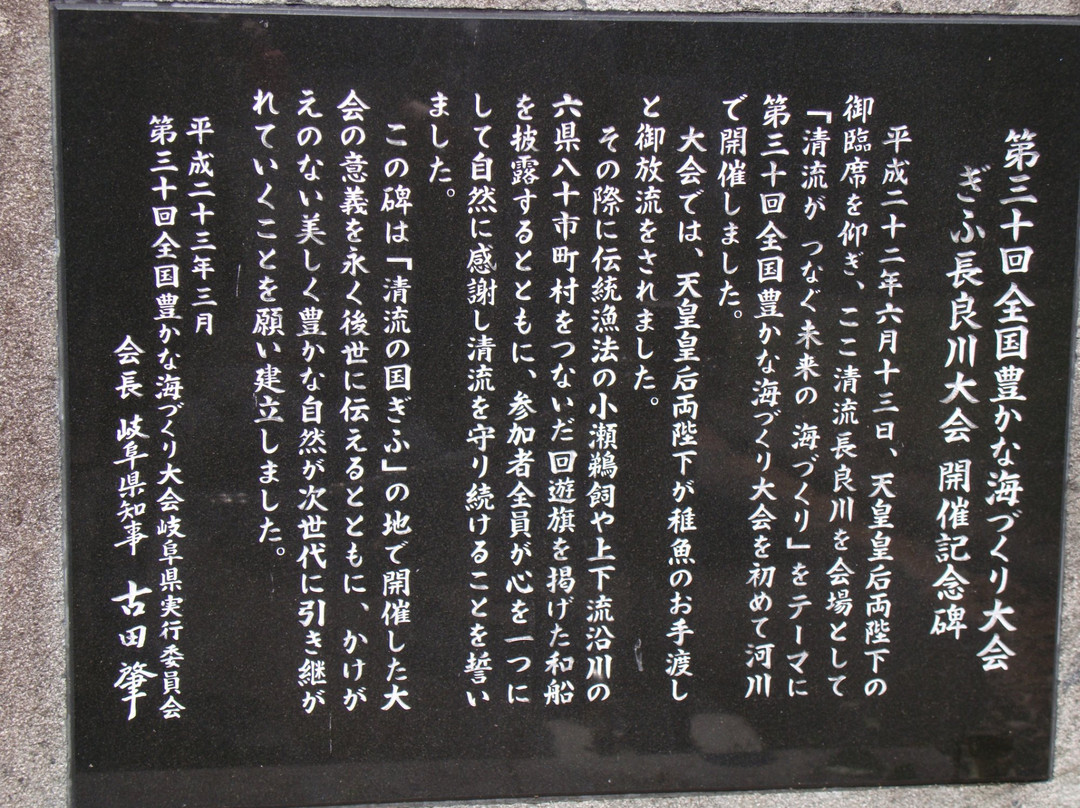 第三十回全国豊かな海づくり大会
ぎふ長良川大会 開催記念碑
平成二十二年六月十三日、天皇皇后両陛下の
御臨席を仰ぎ、ここ清流長良川を会場として
「清流が つなぐ未来の 海づくり」をテーマに
第三十回全国豊かな海づくり大会を初めて河川
で開催しました。
大会では、天皇皇后両陛下が稚魚のお手渡し
と御放流をされました。
その際に伝統漁法の小瀬鵜飼や上下流沿川の
六県八十市町村をつないだ回遊旗を掲げた和船
を披露するとともに、参加者全員が心を一つに
して自然に感謝し清流を守り続けることを誓い
ました。
この碑は「清流の国ぎふ」の地で開催した大
会の意義を永く後世に伝えるとともに、かけが
えのない美しく豊かな自然が次世代に引き継が
れていくことを願い建立しました。
平成二十三年三月
第三十回全国豊かな海づくり大会岐阜県実行委員会
会長 岐阜県知事 古田肇